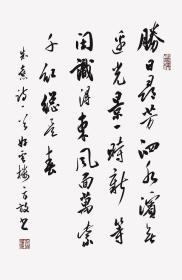 勝日尋芳泗水濱無
邊光景一時新等
閑識得東風面萬紫
千紅總是春
朱熹詩一首